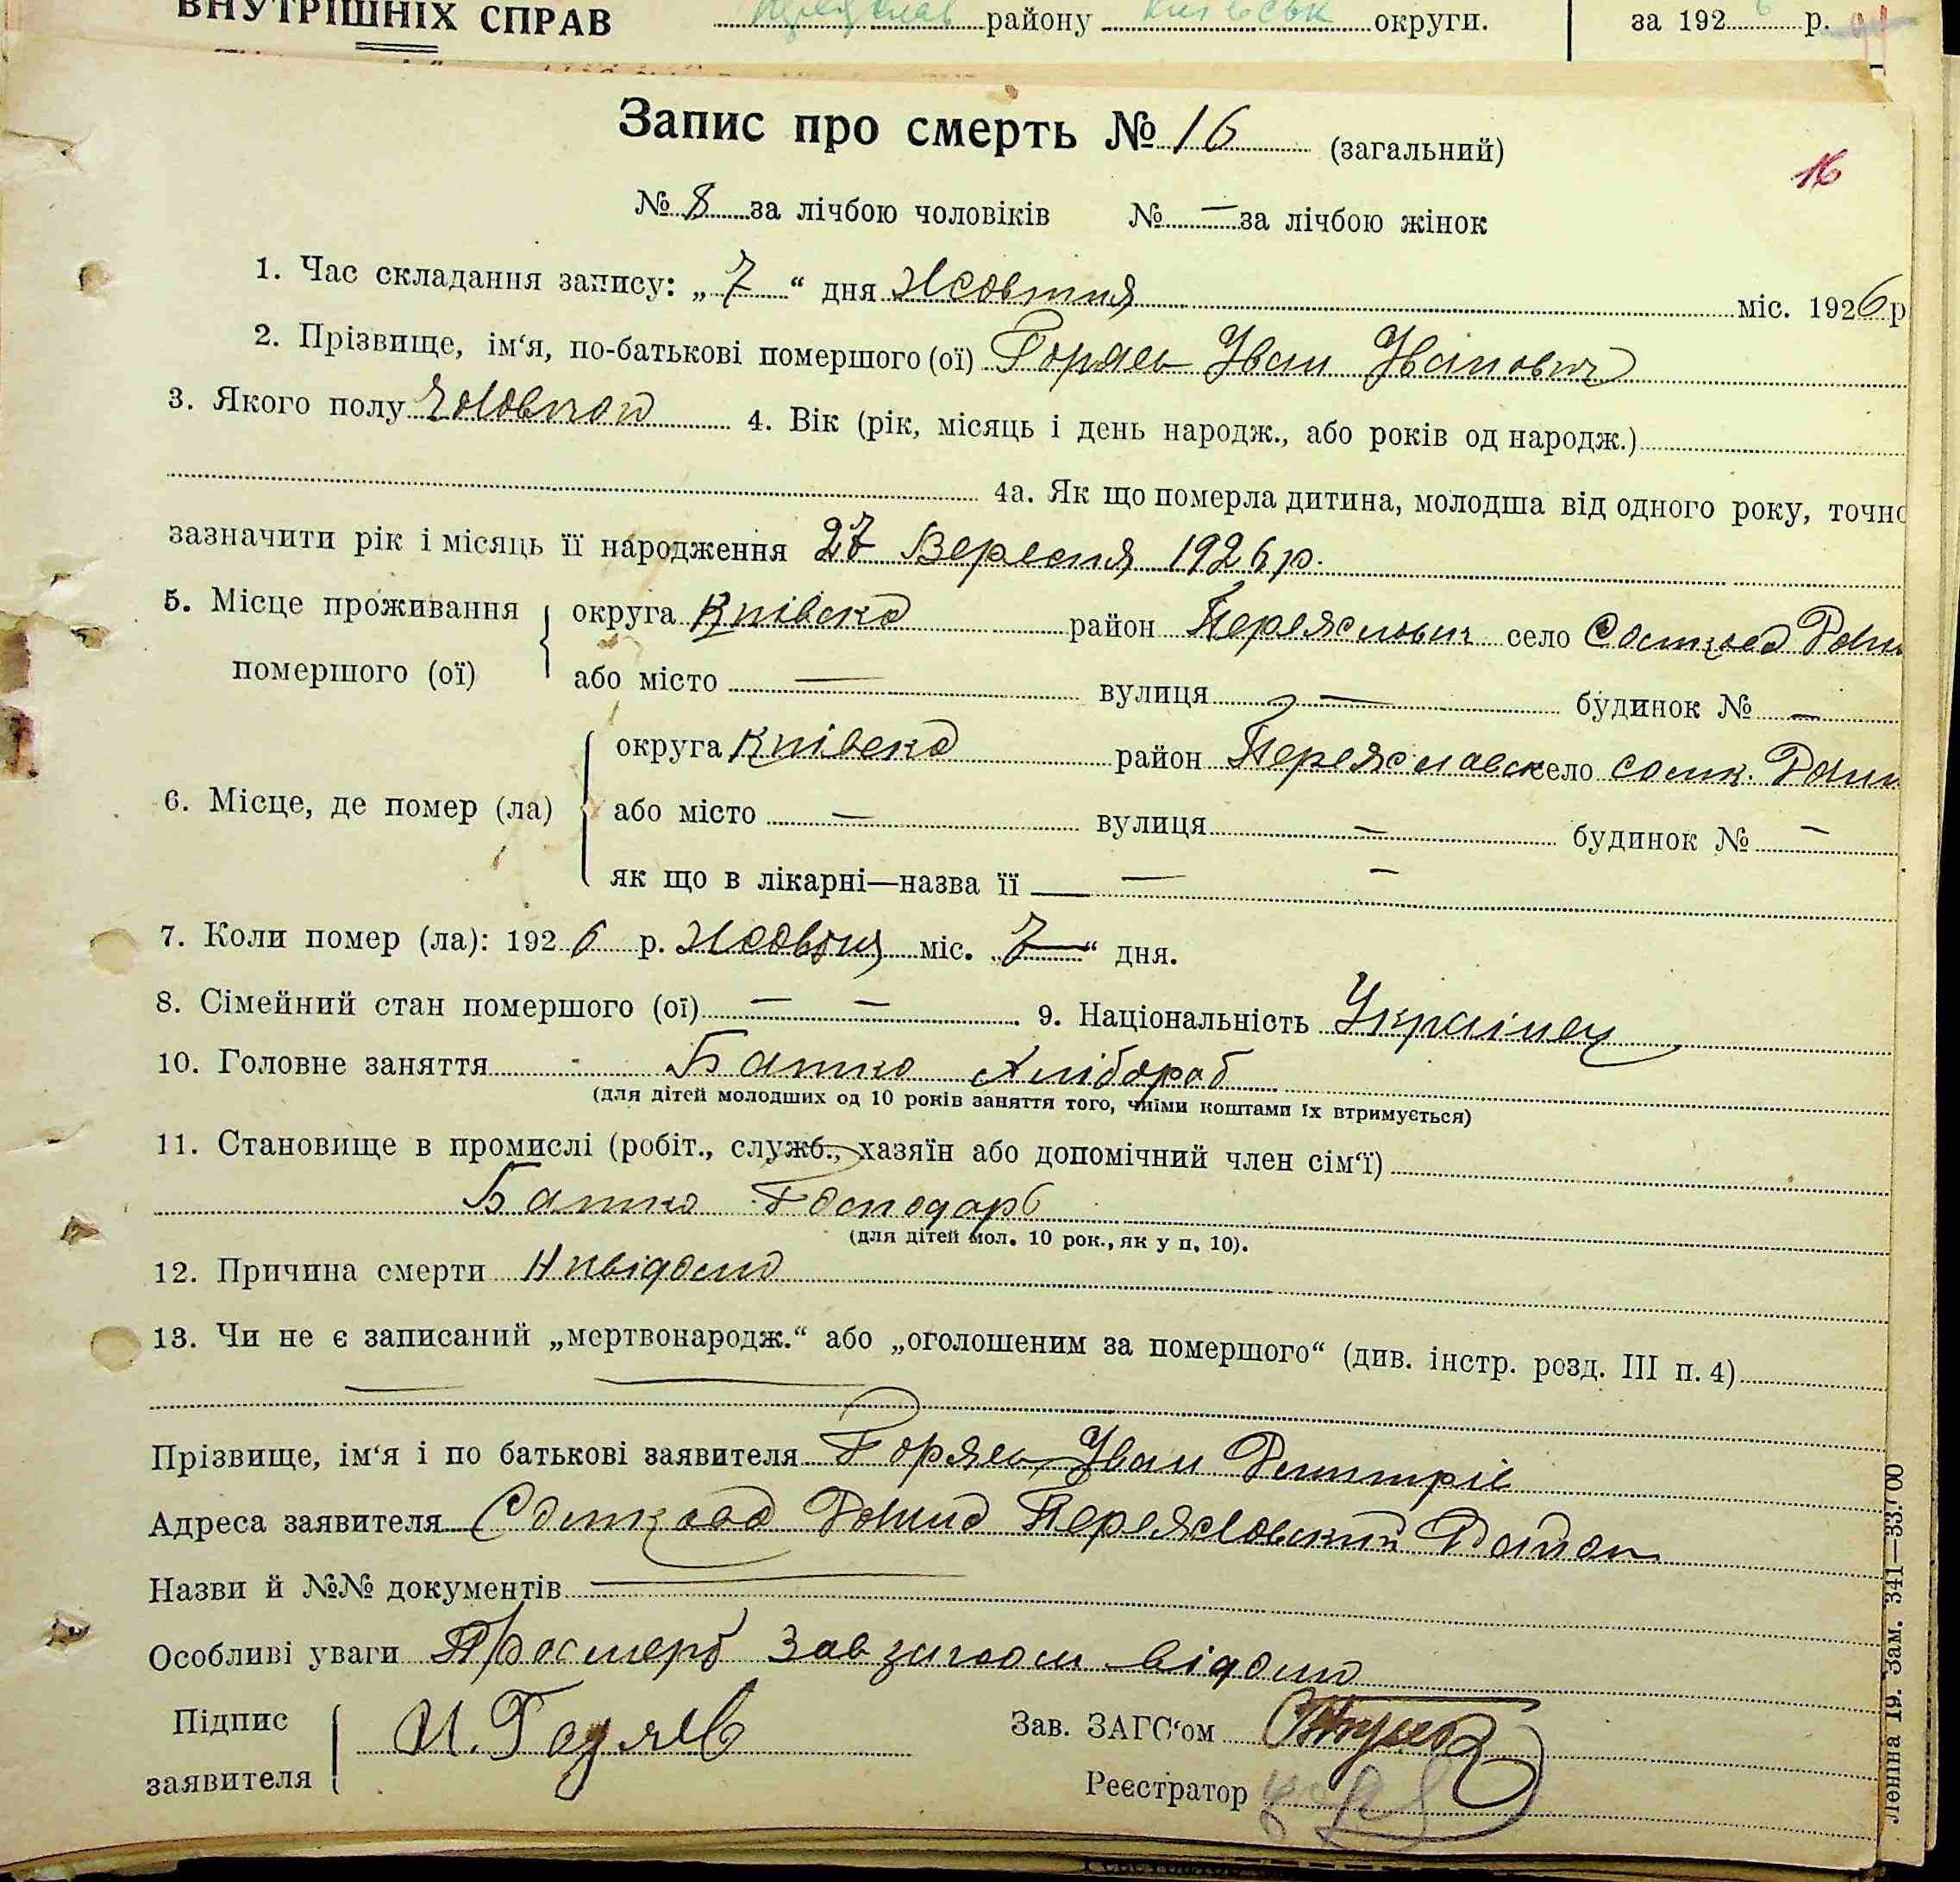 ВНУТРІШНІХ СПРАВ району округи. за 192 р.
Запис про смерть № 16 (загальний)
16
№ 8 за лічбою чоловіків № — за лічбою жінок
1. Час складання запису: „ 7 “ дня Жовтня міс. 1926 р
2. Прізвище, ім‘я, по-батькові помершого (ої) Горяев Іван Іванович
3. Якого полу 4. Вік (рік, місяць і день народж., або років од народж.)
4а. Як що померла дитина, молодша від одного року, точно
зазначити рік і місяць її народження 27 Вересня 1926 р.
5. Місце проживання округа Київска район село
помершого (ої) або місто — вулиця — будинок № —
округа Київска район Переяславск село
6. Місце, де помер (ла) або місто — вулиця — будинок № —
як що в лікарні—назва її — —
7. Коли помер (ла): 1926 р. Жовтня міс. „ 7 “ дня.
8. Сімейний стан помершого (ої) — — 9. Національність Українец
10. Головне заняття Батко Хлібороб
(для дітей молодших од 10 років заняття того, чиїми коштами їх втримується)
11. Становище в промислі (робіт., служб., хазяїн або допомічний член сім‘ї)
Батко Господарь
(для дітей мол. 10 рок., як у п. 10).
12. Причина смерти
13. Чи не є записаний „мертвонародж.“ або „оголошеним за помершого“ (див. інстр. розд. III п. 4)
Прізвище, ім‘я і по батькові заявителя Горяев Іван
Адреса заявителя Район
Назви й №№ документів
Особливі уваги
Підпис
заявителя
Зав. ЗАГС‘ом
Реєстратор
Леніна 19. Зам. 341—33.000